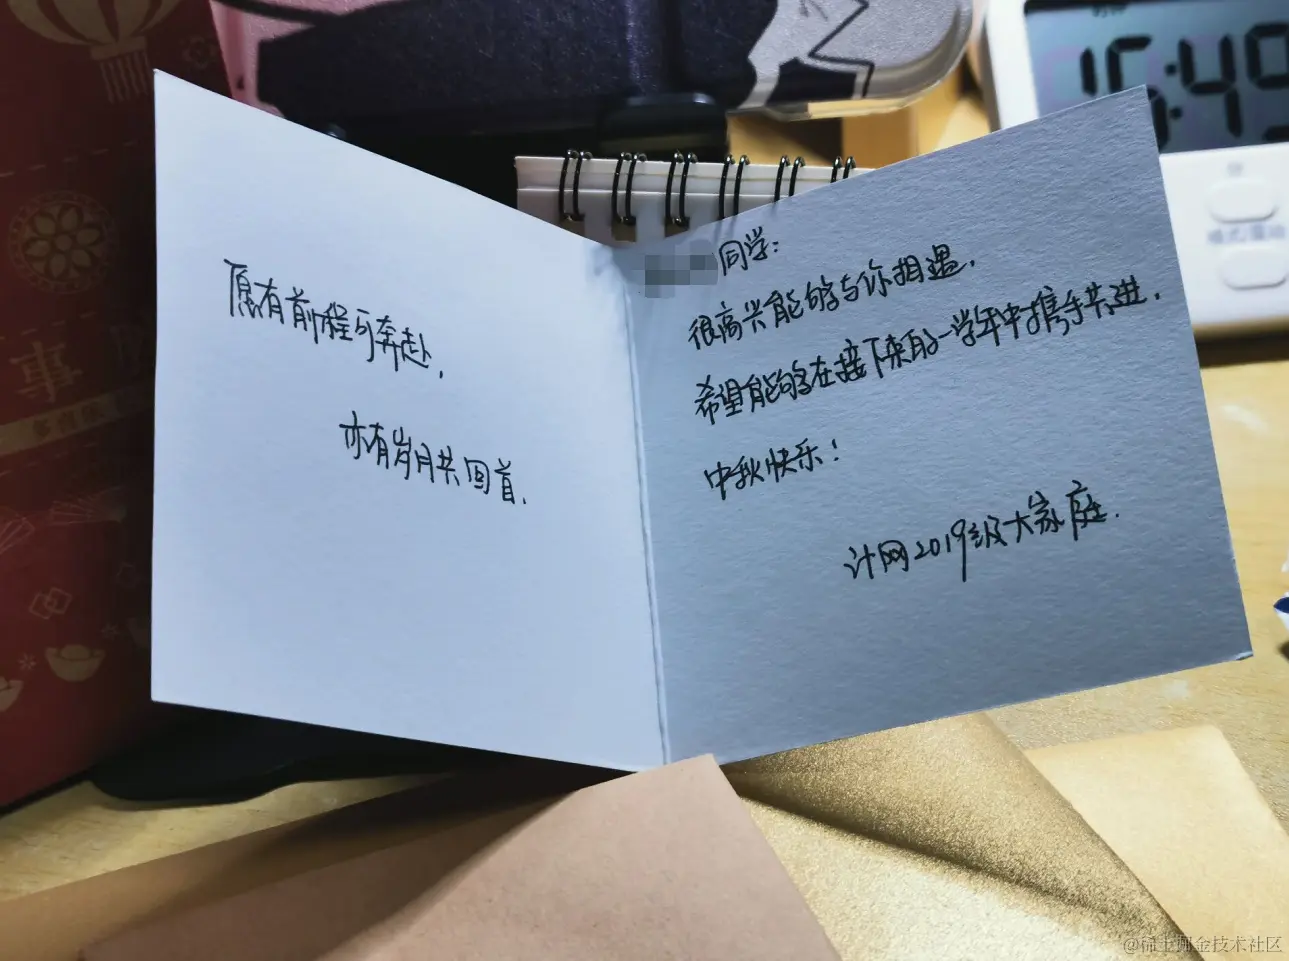 愿有前程可奔赴,
亦有岁月共回首.
同学:
很高兴能够与你相遇.
希望能够在接下来的一学年中携手共进.
中秋快乐!
计网2019级大家庭.
16:49
事
@稀土掘金技术社区